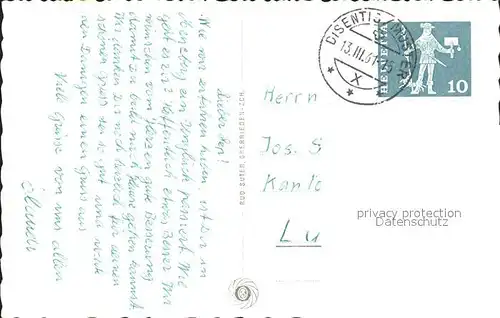 Lieber Sep!
Wie wir erfahren haben, ist Dir in
ein Unglück passiert. Wie
geht es Dir? Hoffentlich etwas besser. Wir
wünschen von Herzen gute Besserung
damit Du bald nach Hause gehen kannst
Wir danken Dir noch herzlich für deinen
schönen Gruss der
den Deinigen einen Gruss von
Viele Grüsse von uns allen
RUD. SUTER, OBERRIEDEN-ZCH.
DISENTIS/MUSTER
13.III.61
X
HELVETIA
10
Herrn
Jos. S
Kanto
Lu
privacy protection
Datenschutz